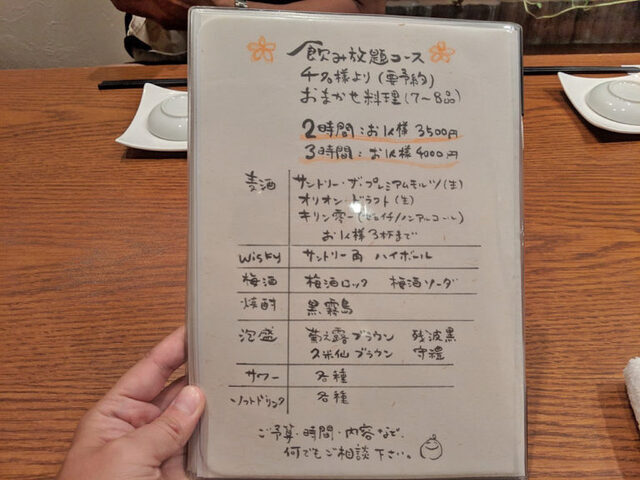 飲み放題コース
4名様より(要予約)
おまかせ料理(7~8品)
2時間:お1人様 3500円
3時間:お1人様 4000円
麦酒 サントリー・ザ・プレミアムモルツ(生)
オリオン・ドラフト(生)
キリン零一(ゼロイチ/ノンアルコール)
お1人様3杯まで
Wisky サントリー角 ハイボール
梅酒 梅酒ロック 梅酒ソーダ
焼酎 黒霧島
泡盛 菊之露ブラウン 残波黒
久米仙ブラウン 守禮
サワー 各種
ソフトドリンク 各種
ご予算・時間・内容など、
何でもご相談下さい。